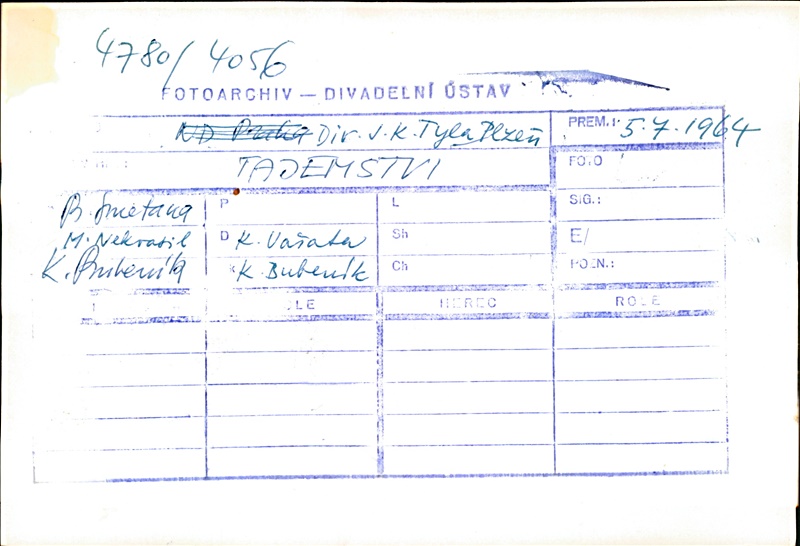 4780/4056
FOTOARCHIV — DIVADELNÍ ÚSTAV
ND Praha Div. J. K. Tyla Plzeň
PREM.: 5.7.1964
TAJEMSTVÍ
FOTO
B. Smetana
P
L
SIG.:
M. Nekvasil
D K. Vašata
Sh
E/
K. Bubeník
K K. Bubeník
Ch
POZN.:
HEREC
ROLE